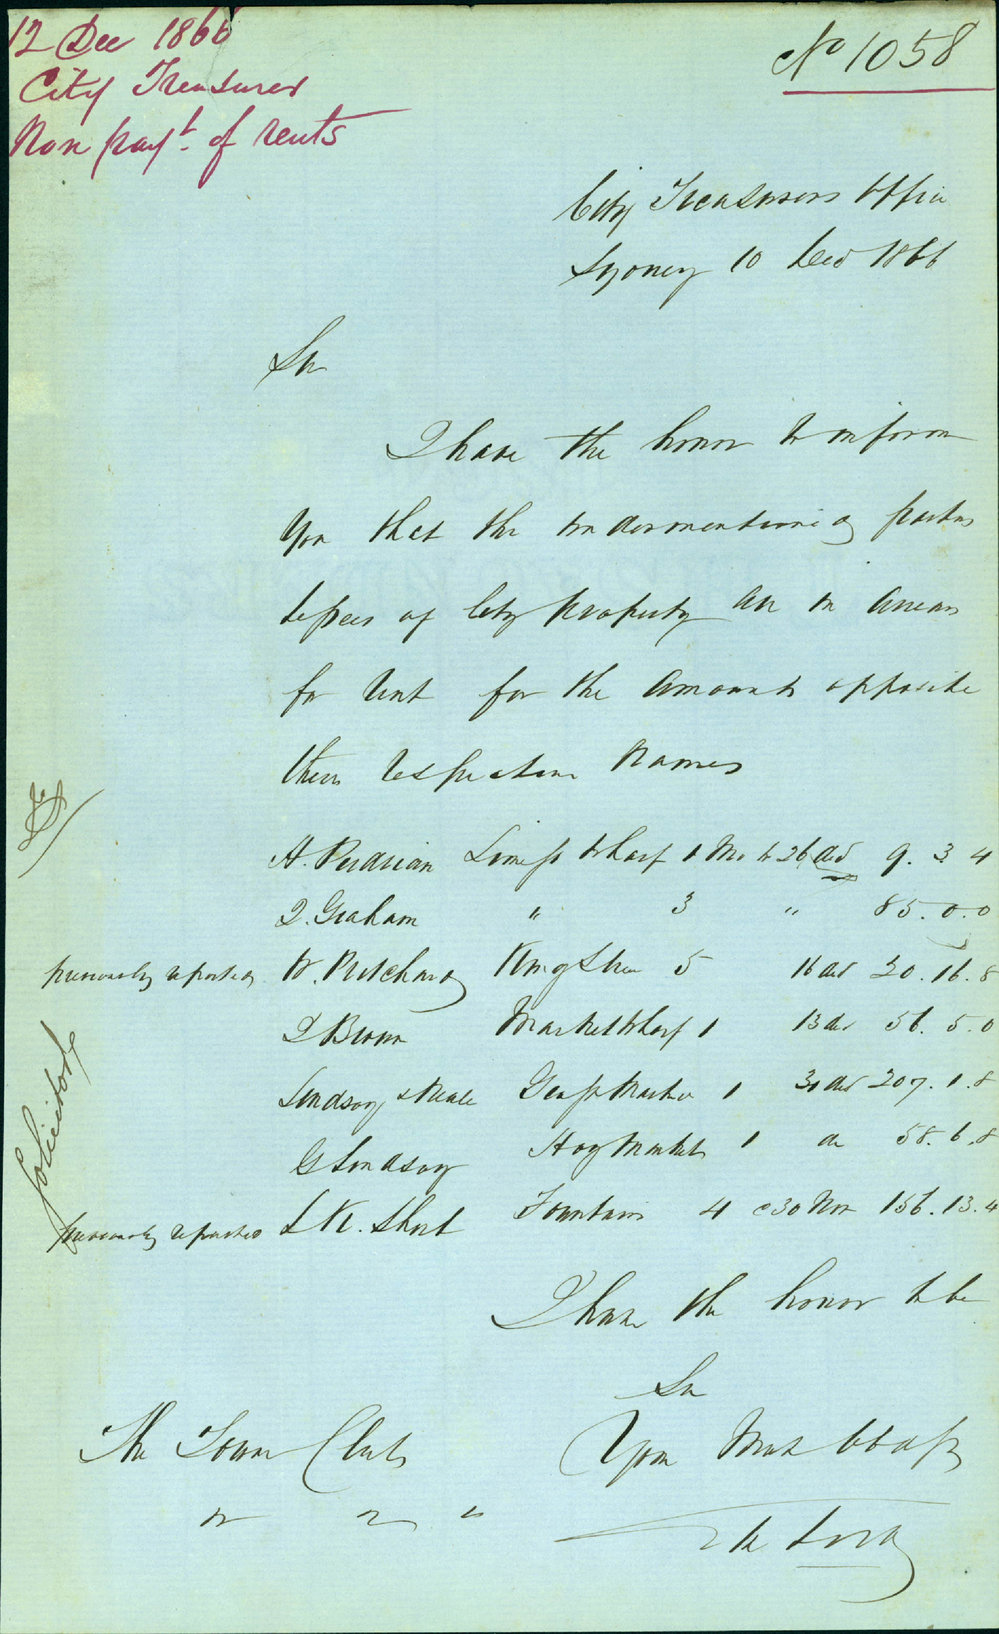 12 Dec 1866
City Treasurer
Non payt. of rents
No 1058
City Treasurers Office
Sydney 10 Dec 1866
Sir
I have the honor to inform
you that the undermentioned parties
lessees of City property are in arrears
for rent for the amounts opposite
their respective names
A. Perdrian Limest Wharf 1 Mo to 26 Dec 9. 3 4
J. Graham " 3 " 85. 0. 0
previously reported W. Pritchard King Street 5 16 do 20. 16. 8
J Brown Market Wharf 1 13 do 56. 5. 0
Lindsay & Neale Geo St Market 1 31 do 207. 1. 8
G Lindsay Hay Market 1 do 58. 6. 8
previously reported Short Fountains 4 30 Nov 156. 13. 4
Solicitor
I have the honor to be
Sir
Your Most Obdt
The Town Clerk